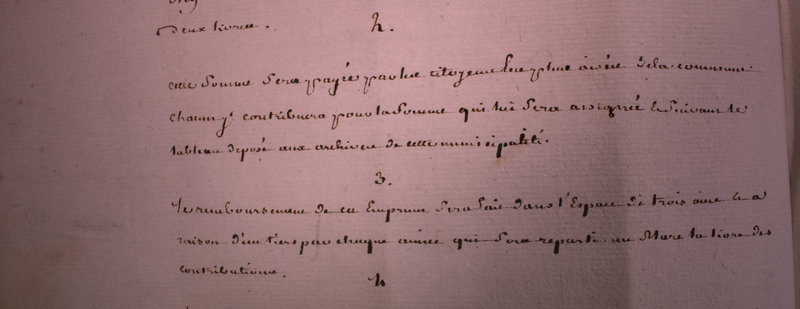 deux livres.
2.
cette Somme Sera payée par les citoyens les plus aisés de la commune
chacun y contribuera pour la Somme qui lui Sera assignée Suivant le
tableau deposé aux archives de cette municipalité.
3.
Le remboursement de cet Emprunt Sera fait dans l'Espace de trois ans et a
raison d'un tiers par chaque année qui Sera reparti au Marc la livre des
contributions.
4